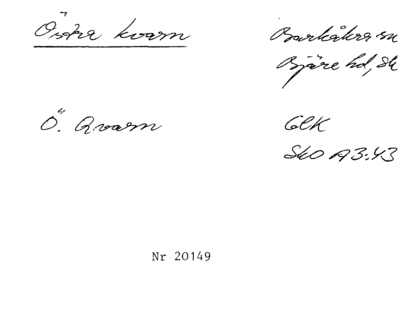 Östra kvarn
Barkåkra sn
Bjäre hd, Sk
Ö. Qvarn
GEK
SkO A3:43
Nr 20149